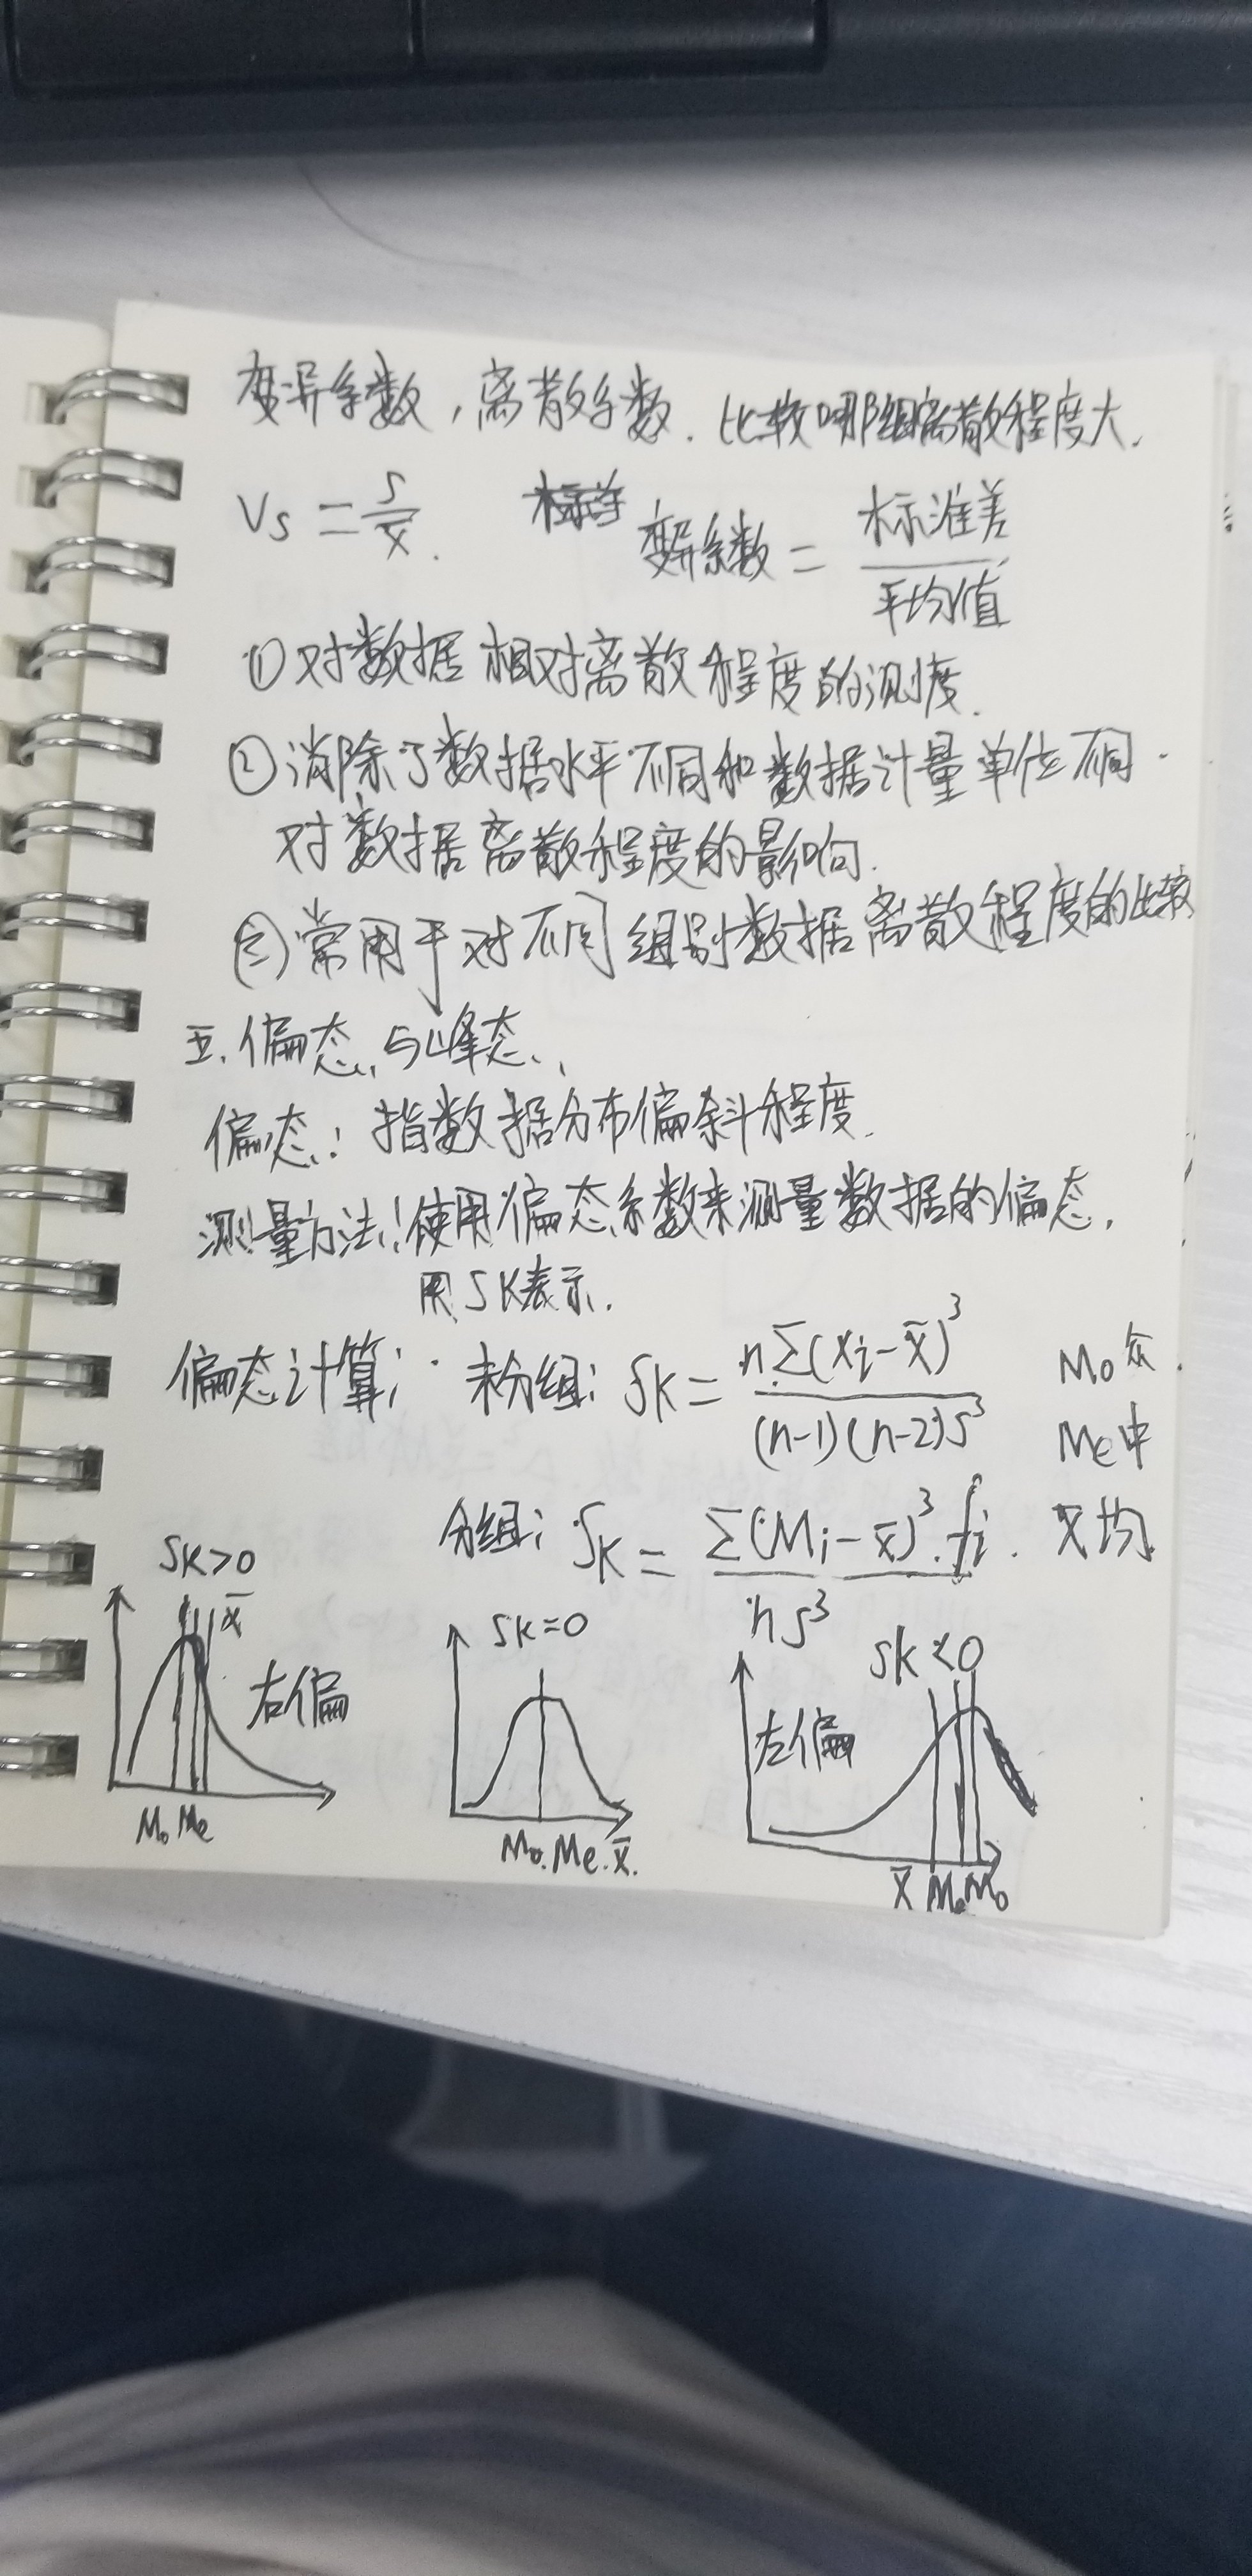 变异系数，离散系数．比较哪组离散程度大．
Vs = s/x̄．  变异系数 = 标准差/平均值
①对数据相对离散程度的测度．
②消除了数据水平不同和数据计量单位不同．
对数据离散程度的影响．
③常用于对不同组别数据离散程度的比较
五．偏态与峰态．
偏态：指数据分布偏斜程度．
测量方法：使用偏态系数来测量数据的偏态，
用SK表示．
偏态计算：未分组：SK = n∑(xi-x̄)³/(n-1)(n-2)s³  Mo众．
Me中
分组：SK = ∑(Mi-x̄)³·fi/ns³．  x̄均
SK>0  x̄  右偏  Mo Me
SK=0  Mo．Me．x̄．
SK<0  左偏  x̄ Me Mo